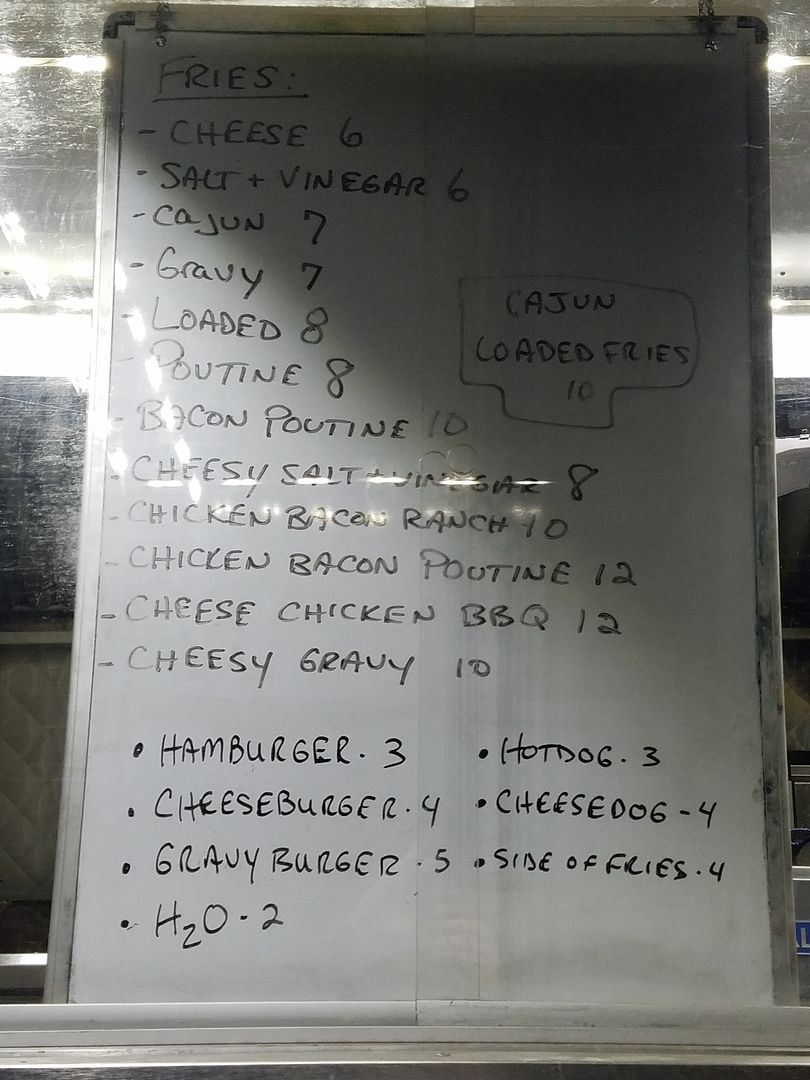 FRIES:
- CHEESE 6
- SALT + VINEGAR 6
- CAJUN 7
- Gravy 7
- LOADED 8
- POUTINE 8
- BACON POUTINE 10
- CHEESY SALT + VINEGAR 8
- CHICKEN BACON RANCH 10
- CHICKEN BACON POUTINE 12
- CHEESE CHICKEN BBQ 12
- CHEESY GRAVY 10
CAJUN
LOADED FRIES
10
• HAMBURGER. 3
• CHEESEBURGER. 4
• GRAVY BURGER. 5
• H₂O - 2
• HOTDOG. 3
• CHEESEDOG - 4
• SIDE OF FRIES. 4